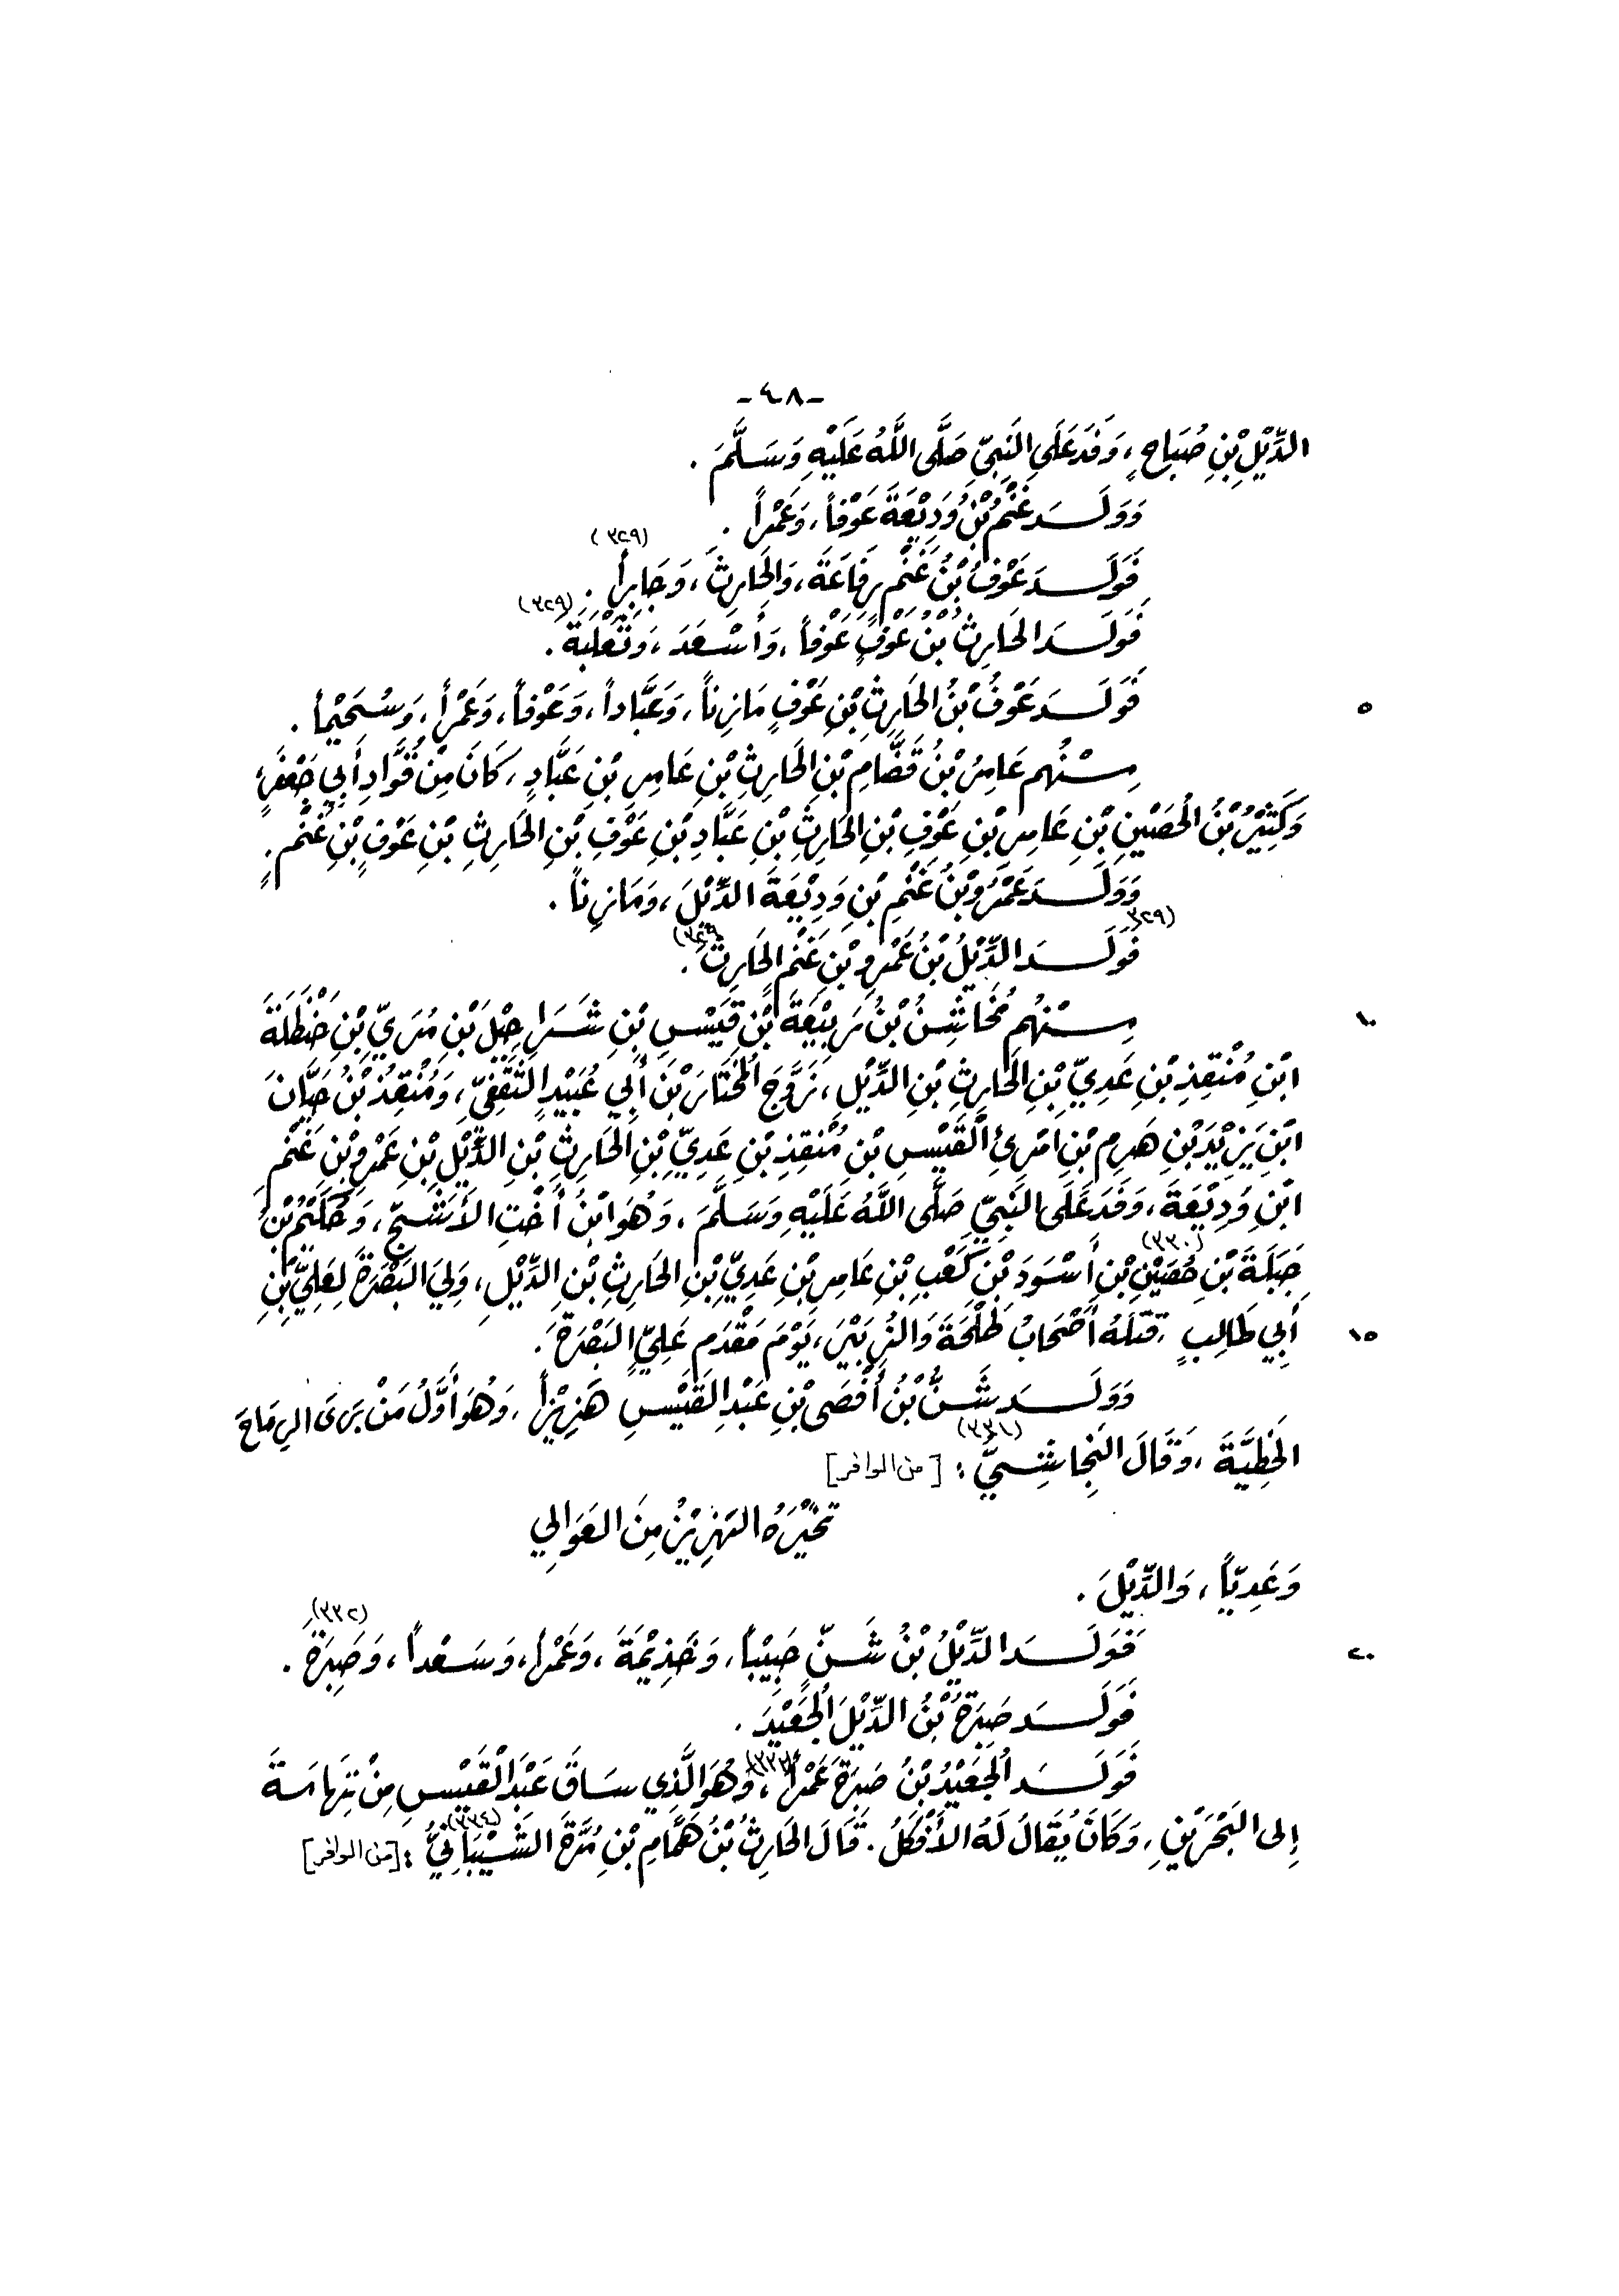 -٤٨-
الدِّيْلِ بْنِ صُبَاحٍ، وَفَدَ عَلَى النَّبِيِّ صَلَّى اللَّهُ عَلَيْهِ وَسَلَّمَ .
وَوَلَدَ غَنْمُ بْنُ وَدِيْعَةَ عَوْفاً، وَعَمْراً .
فَوَلَدَ عَوْفُ بْنُ غَنْمٍ رِفَاعَةَ، وَالحَارِثَ، وَجَابِراً . (٣٢٩)
فَوَلَدَ الحَارِثُ بْنُ عَوْفٍ عَوْفاً، وَأَسْعَدَ، وَثَعْلَبَةَ . (٣٢٩)
فَوَلَدَ عَوْفُ بْنُ الحَارِثِ بْنِ عَوْفٍ مَازِناً، وَعَبَّاداً، وَعَوْفاً، وَعَمْراً، وَسُحَيْماً . ٥
مِنْهُم عَامِرُ بْنُ قَضَّامِ بْنِ الحَارِثِ بْنِ عَامِرِ بْنِ عَبَّادٍ، كَانَ مِنْ قُوَّادِ أَبِي جَعْفَرٍ،
وَكَثِيْرُ بْنُ الحُصَيْنِ بْنِ عَامِرِ بْنِ عَوْفِ بْنِ الحَارِثِ بْنِ عَبَّادِ بْنِ عَوْفِ بْنِ الحَارِثِ بْنِ عَوْفِ بْنِ غَنْمٍ .
وَوَلَدَ عَمْرُو بْنُ غَنْمِ بْنِ وَدِيْعَةَ الدِّيْلَ، وَمَازِناً .
(٣٢٩) فَوَلَدَ الدِّيْلُ بْنُ عَمْرِو بْنِ غَنْمٍ الحَارِثَ . (٣٢٩)
مِنْهُم مُخَاشِنُ بْنُ رَبِيْعَةَ بْنِ قَيْسِ بْنِ شَرَاحِيْلَ بْنِ مُرَيِّ بْنِ حَنْظَلَةَ ١٠
ابْنِ مُنْقِذِ بْنِ عَدِيِّ بْنِ الحَارِثِ بْنِ الدِّيْلِ، زَوَّجَ المُخْتَارَ بْنَ أَبِي عُبَيْدٍ الثَّقَفِيَّ، وَمُنْقِذُ بْنُ حَيَّانَ
ابْنِ يَزِيْدَ بْنِ هَرِمِ بْنِ امْرِئِ القَيْسِ بْنِ مُنْقِذِ بْنِ عَدِيِّ بْنِ الحَارِثِ بْنِ الدِّيْلِ بْنِ عَمْرِو بْنِ غَنْمِ
ابْنِ وَدِيْعَةَ، وَفَدَ عَلَى النَّبِيِّ صَلَّى اللَّهُ عَلَيْهِ وَسَلَّمَ، وَهُوَ ابْنُ أُخْتِ الأَشَجِّ، وَحُكَيْمُ بْنُ
جَبَلَةَ بْنِ حُصَيْنِ (٣٣٠) بْنِ أَسْوَدَ بْنِ كَعْبِ بْنِ عَامِرِ بْنِ عَدِيِّ بْنِ الحَارِثِ بْنِ الدِّيْلِ، وَلِيَ البَصْرَةَ لِعَلِيِّ بْنِ
أَبِي طَالِبٍ، قَتَلَهُ أَصْحَابُ طَلْحَةَ وَالزُّبَيْرِ، يَوْمَ مَقْدَمِ عَلِيٍّ البَصْرَةَ . ١٥
وَوَلَدَ شَنُّ بْنُ أَفْصَى بْنِ عَبْدِ القَيْسِ هَزِيْزاً، وَهُوَ أَوَّلُ مَنْ بَرَى الرِمَاحَ
الخَطِيَّةَ، وَقَالَ النَّجَاشِيُّ (٣٣١) : [من الوافر]
تَخَيَّرَهُ الهَزِيْزُ مِنَ العَوَالِي
وَعَدِيّاً، وَالدِّيْلَ .
فَوَلَدَ الدِّيْلُ بْنُ شَنٍّ حَبِيْباً، وَجَذِيْمَةَ، وَعَمْراً، وَسَعْداً، وَصَبِرَةَ (٣٣٢) . ٢٠
فَوَلَدَ صَبِرَةُ بْنُ الدِّيْلِ الجُعَيْدَ .
فَوَلَدَ الجُعَيْدُ بْنُ صَبِرَةَ عَمْراً (٣٣٣)، وَهُوَ الَّذِي سَاقَ عَبْدَ القَيْسِ مِنْ تِهَامَةَ
إِلى البَحْرَيْنِ، وَكَانَ يُقَالُ لَهُ الأَفْكَلُ . قَالَ الحَارِثُ بْنُ هَمَّامِ بْنِ مُرَّةَ الشَّيْبَانِيُّ (٣٣٤) : [من الوافر]